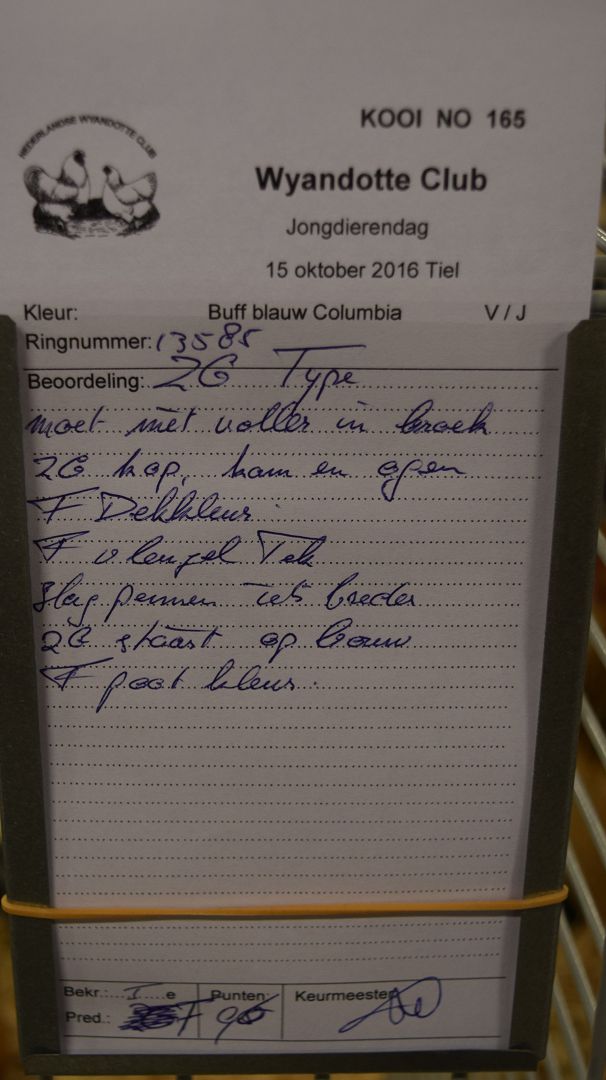 NEDERLANDSE WYANDOTTE CLUB
KOOI NO 165
Wyandotte Club
Jongdierendag
15 oktober 2016 Tiel
Kleur: Buff blauw Columbia V / J
Ringnummer: 13585
Beoordeling: ZG Type
moet niet voller in broek
ZG kop, kam en ogen
F Dekkleur.
F vleugel Tek
Slagpennen iets breder
ZG staart opbouw
F pootkleur.
Bekr.: I e Punten: Keurmeester
Pred.: F 96